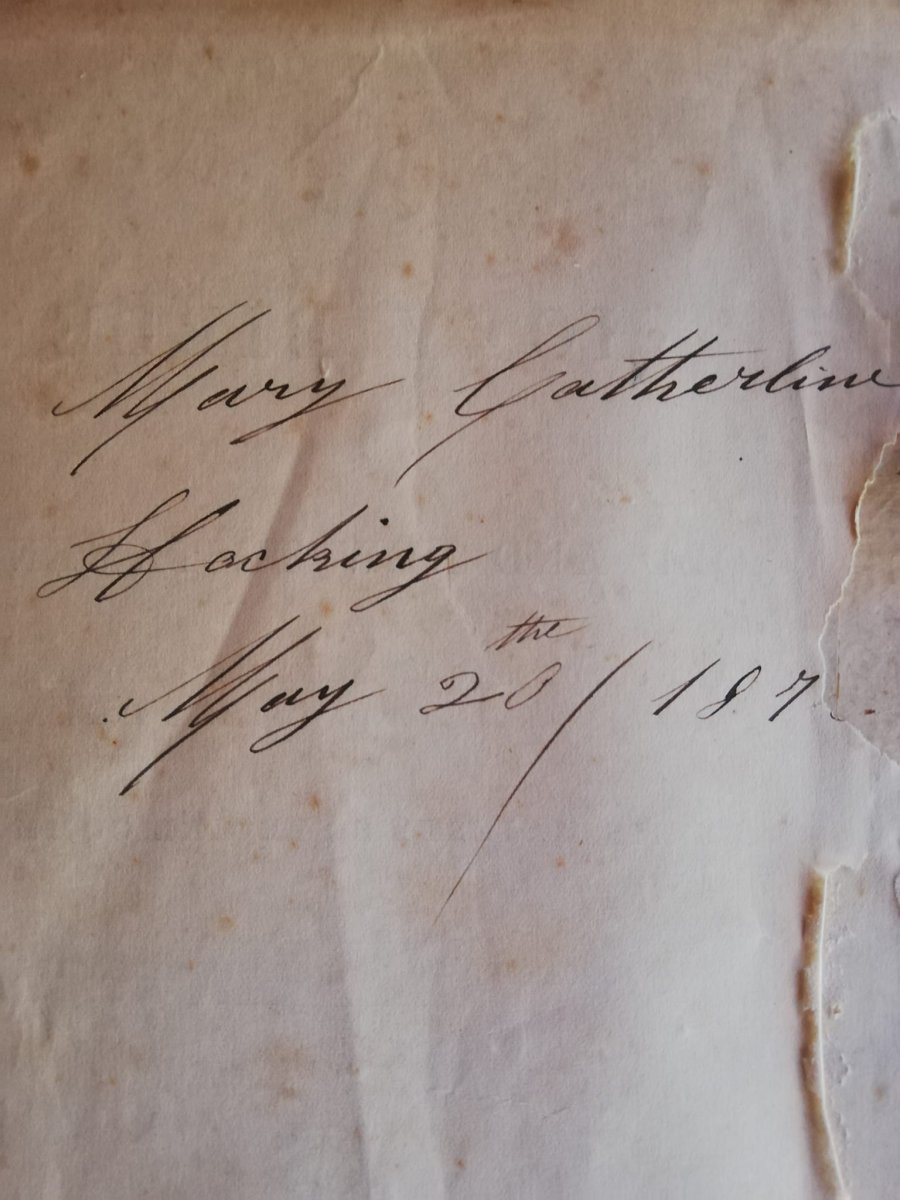 Mary Catherine
Hocking
May 20the / 187